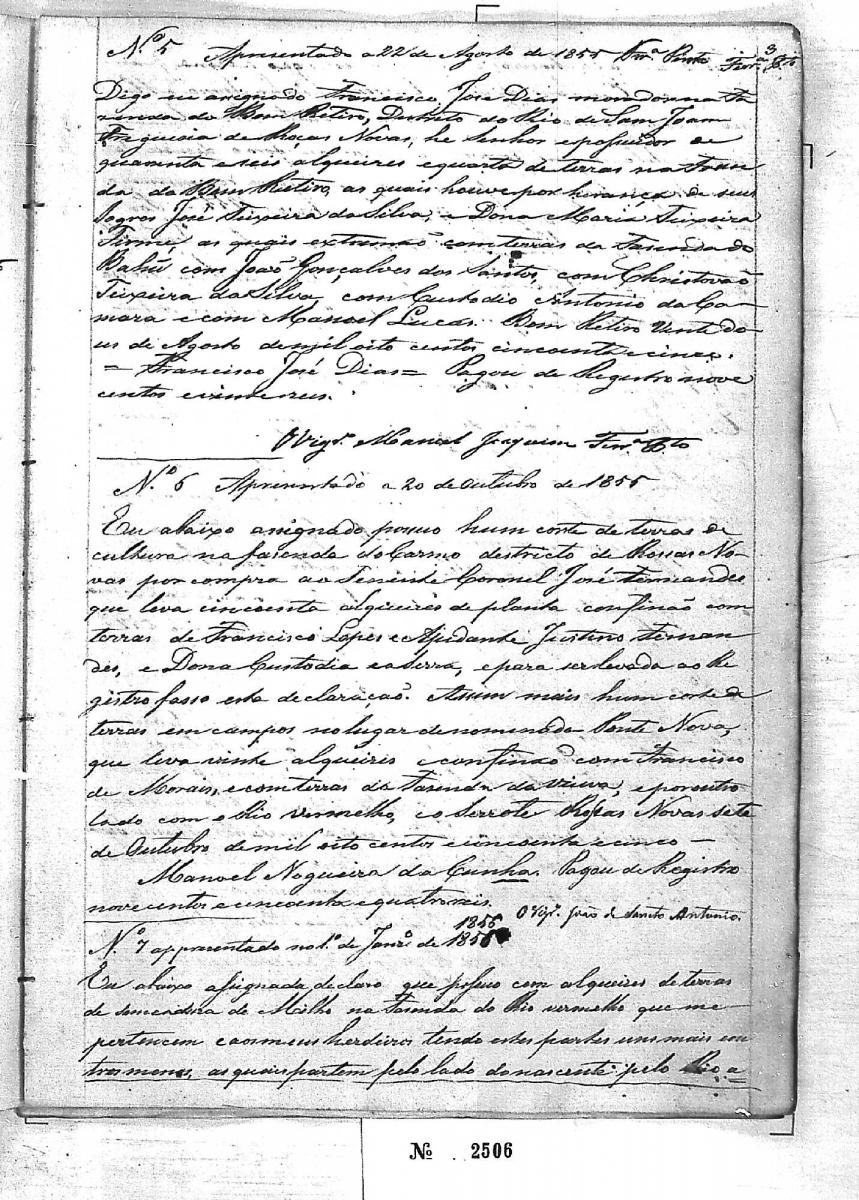 3
N.º 5 Apresentado a 22 de Agosto de 1855 Frr.ª Pinto Ferr.ª P.to
Digo eu asignado Francisco José Dias morador na Fa-
zenda do Bom Retiro, Destricto do Rio de Sam Joam
Freguesia de Roças Novas, he Senhor e posuidor de
quarenta e seis alqueires e quarta de terras na Fazen
da do Bom Retiro, as quais houve por herança de seus
Sogros José Teixeira da Silva, e Dona Maria Teixeira
Firme, as quais extremaõ com terras da Fasenda do
Bahú com Joaõ Gonçalves dos Santos, com Christovaõ
Teixeira da Silva, com Custodio Antonio da Ca-
mara e com Manoel Lucas. Bom Retiro vinte do-
us de Agosto de mil oito centos cincoenta e cinco.
= Francisco José Dias = Pagou de Registro nove
centos e vinte reis.
O Vigr.º Manoel Joaquim Ferr.ª P.to
N.º 6 Apresentado a 20 de Outubro de 1855
Eu abaixo asignado posuo hum corte de terras de
cultura na fazenda do Carmo destricto de Rossas No-
vas por compra ao Tenente Coronel José Fernandes
que leva cincoenta alqueires de planta confinaõ com
terras de Francisco Lopes e Ajudante Justino Fernan
des, e Dona Custodia e a Serra, e para ser levada ao Re
gistro fasso esta declaraçaõ. Assim mais hum corte de
terras em campos no lugar denomenado Ponte Nova,
que leva vinte alqueiris e confinaõ com Francisco
de Morais, e com terras da Fasenda da Viuva, e por outro
lado com o Rio vermelho, e o Serrote Rossas Novas sete
de Outubro de mil oito centos e cincoenta e cinco —
Manoel Nogueira da Cunha. Pagou de Registro
nove centos e cincoenta e quatro reis.
O Vigr.º João de Santo Antonio.
N.º 7 appresentado no 1.º de Janr.º de 1856 1856
Eu abaixo assignada declaro que possuo cem alqueires de terras
de semeadura de Milho na Fasenda do Rio vermelho que me
pertencem e aos meus herdeiros tendo estes partes uns mais ou
tros menos, as quais partem pelo lado do nascente pelo Rio a=
Nº 2506